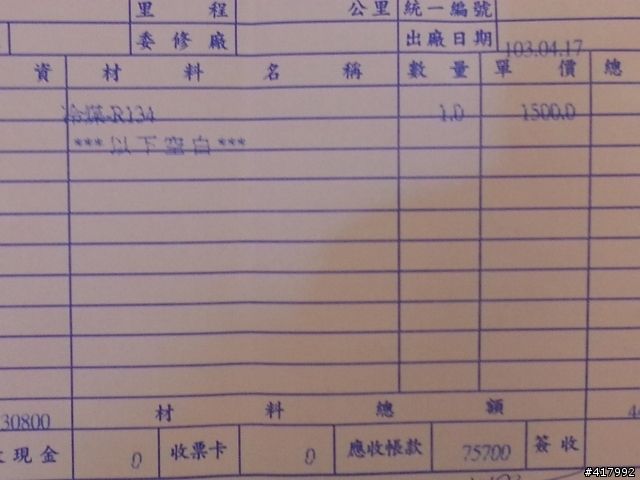 里 程 公里 統一編號
委修廠 出廠日期 103.04.17
資 材 料 名 稱 數 量 單 價 總
冷煤-R134 1.0 1500.0
*** 以下空白 ***
30800 材 料 總 額
現金 0 收票卡 0 應收帳款 75700 簽收
#417992